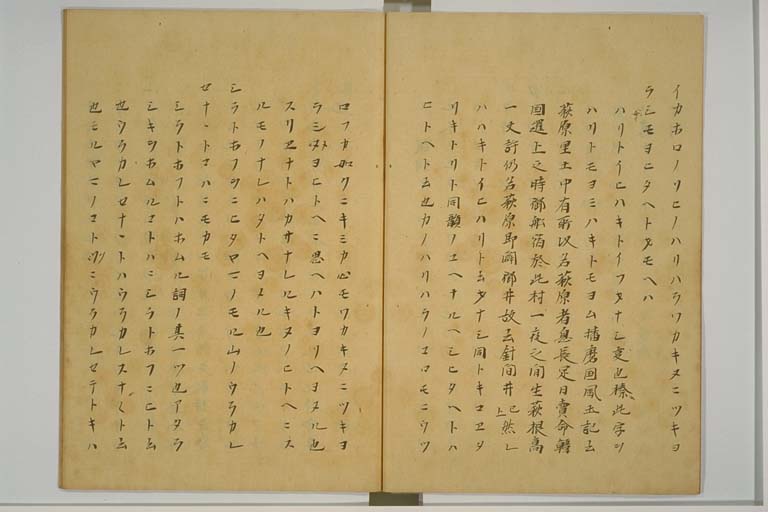 イカホロノソヒノハリハラワカキヌニツキヨ
ラシモヨヒタヘトオモヘハ
ハリトイヒハキトイフオナシ変也榛此字ヲ
ハリトモヨミハキトモヨム播磨国風土記云
萩原里土中有所以名萩原者息長足日賣命韓
国還上之時御舩宿於此村一夜之间生萩根高
一丈許仍名萩原即闢御井故云針间井已上然レ
ハハキトイヒハリト云オナシ同トキコエタ
リキトリト同韻ノユヘナルヘシヒタヘトハ
ヒトヘト云也カノハリハラノコロモニウツ
ロフカ如クニキミカ心モワカキヌニツキヨ
ラシメヨヒトヘニ思ヘハトヨソヘヨメル也
スソヱナトハカサナレルキヌノヒトヘニス
ルモノナレハタトヘヨメル也
シラトホフヲニヒタヤマノモル山ノウラカレ
セナナトコハニモカモ
シラトホフトハホムル詞ノ其一ツ也アタラ
シキヲホムルコトハニシラトホフニヒト云
也ウラカレセナナトハウラカレスナヽト云
也モルヤマノコトクニウラカレセテトキハ